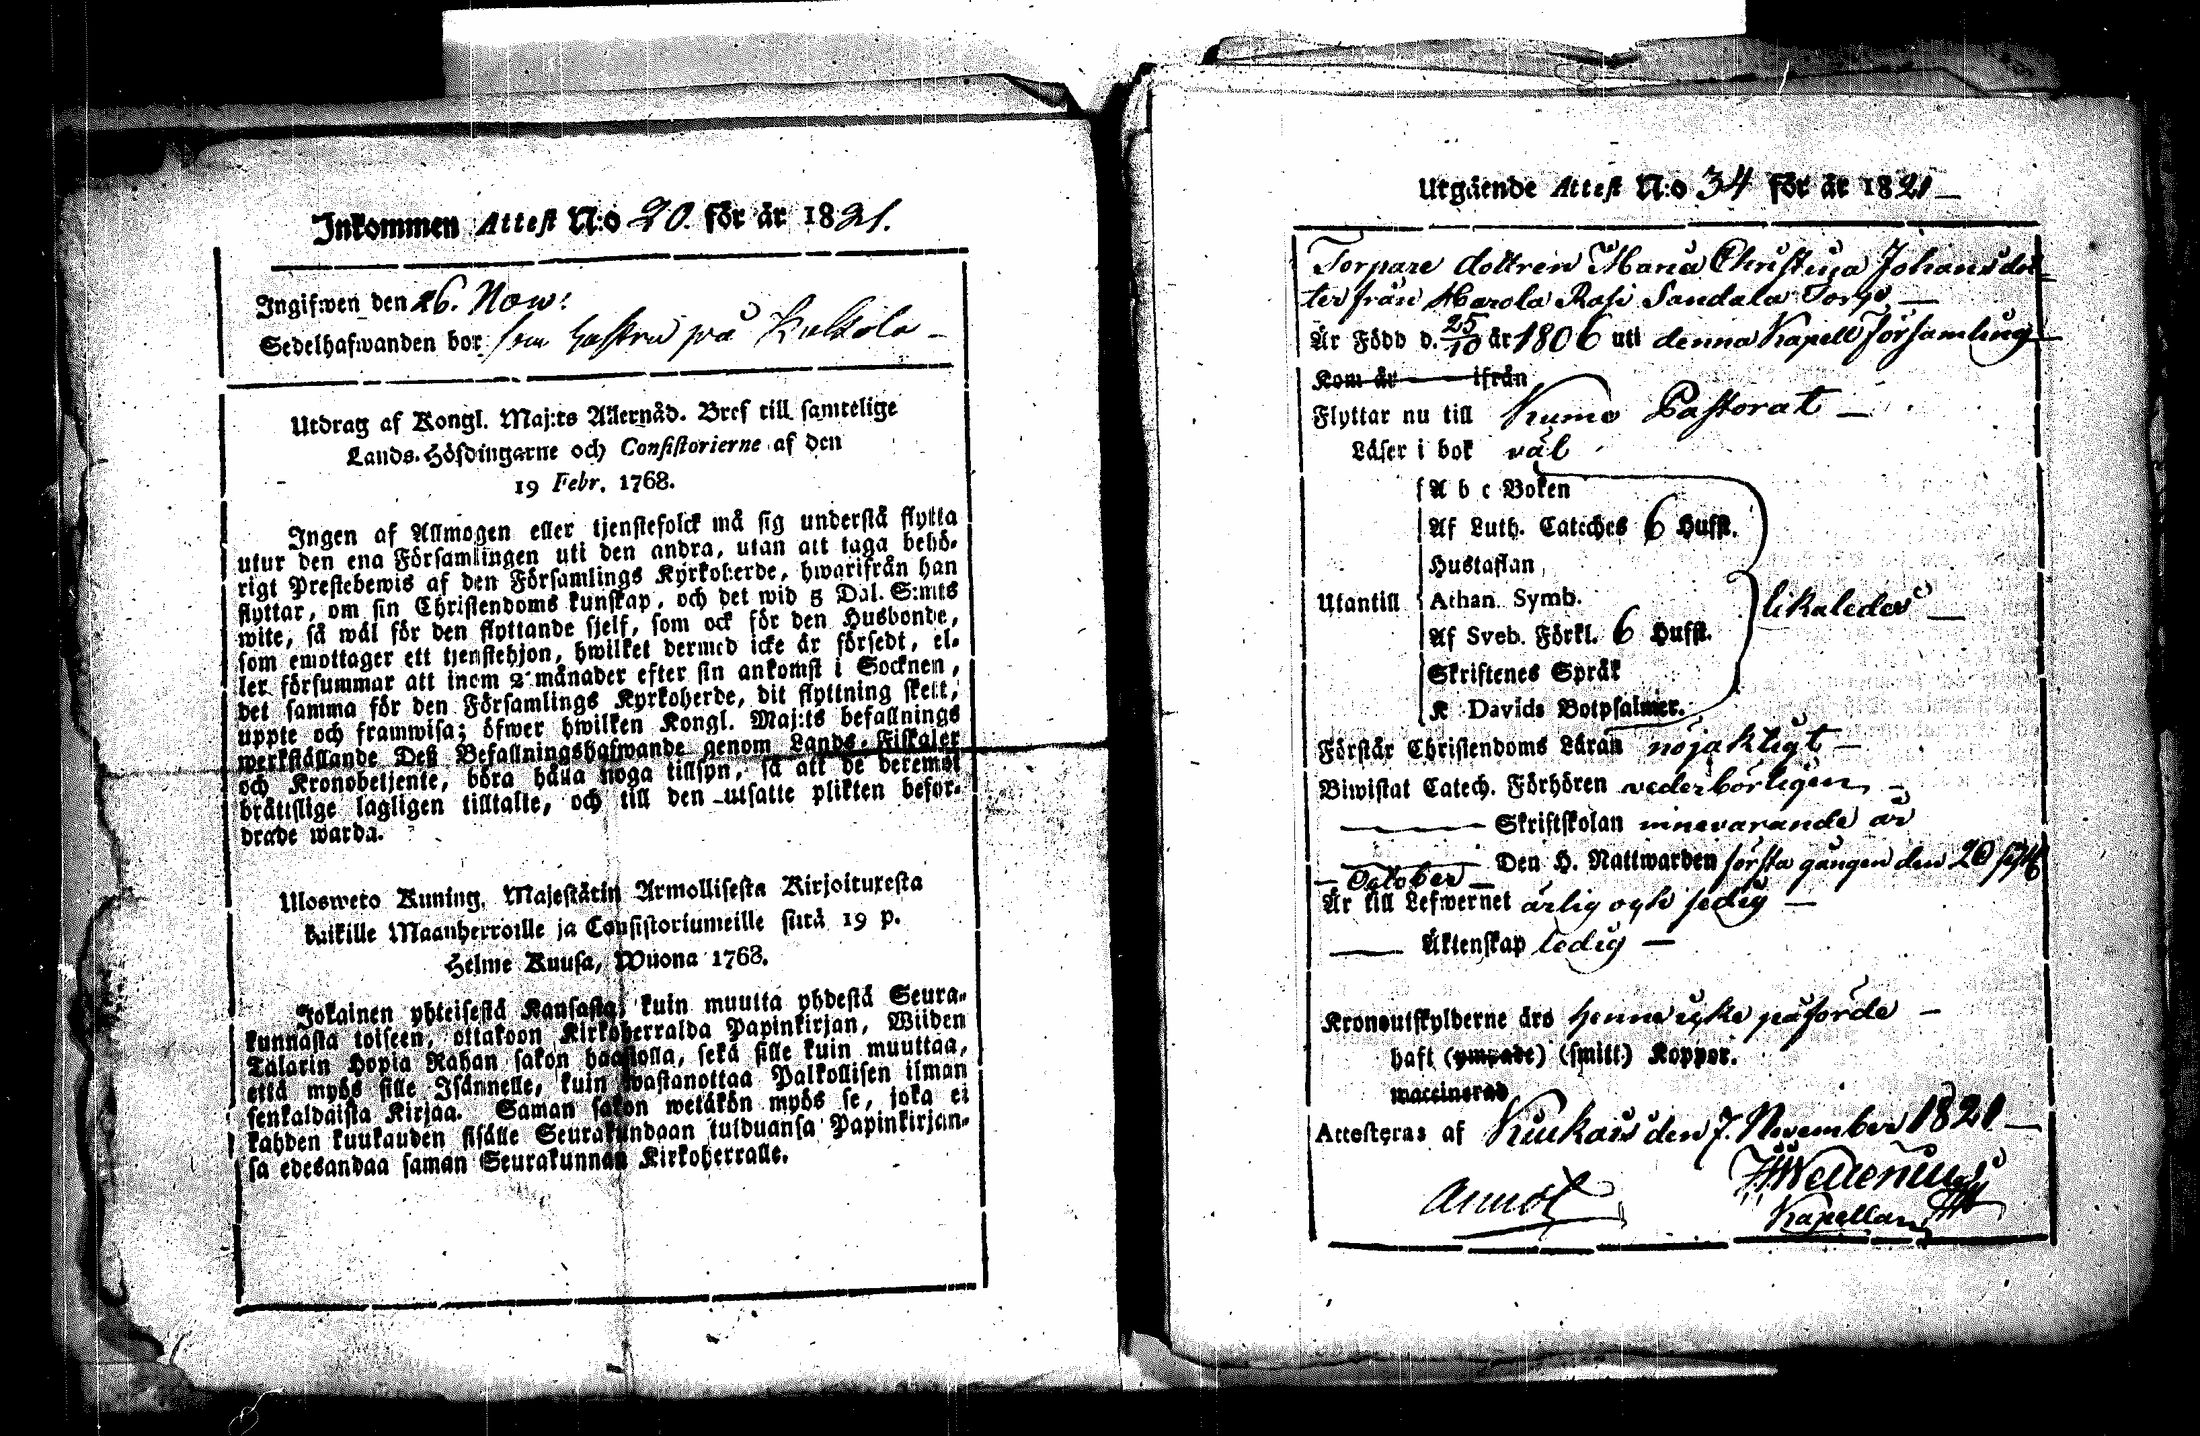 Inkommen Attest N:o 20. för år 1821.
Ingifwen den 26. Now:
Sedelhafwanden bor som hustru på
Utdrag af Kongl. Maj:ts Allernåd. Bref till samtelige
Lands-Höfdingarne och Consistorierne af den
19 Febr. 1768.
Ingen af Allmogen eller tjenstefolck må sig understå flytta
utur den ena Församlingen uti den andra, utan att taga behö-
rigt Prestebewis af den Församlings Kyrkoherde, hwarifrån han
flyttar, om sin Christendoms kunskap, och det wid 5 Dal. S:mts
wite, så wäl för den flyttande sjelf, som ock för den Husbonde,
som emottager ett tjenstehjon, hwilket dermed icke är försedt, el-
ler försummar att inom 2 månader efter sin ankomst i Socknen,
det samma för den Församlings Kyrkoherde, dit flyttning skett,
uppte och framwisa; öfwer hwilken Kongl. Maj:ts befallnings
werkställande Deß Befallningshafwande genom Lands-Fiskaler
och Kronobetjente, böra hålla noga tillsyn, så att de deremot
bråttslige lagligen tilltalte, och till den utsatte plikten befor-
drade warda.
Ulosweto Kuning. Majestätin Armollisesta Kirjoituxesta
kaikille Maanherroille ja Consistoriumeille siitä 19 p.
Helme Kuusa, Wuona 1768.
Jokainen yhteisestä Kansasta, kuin muutta yhdestä Seura-
kunnasta toiseen, ottakoon Kirkoherralda Papinkirjan, Wiiden
Talarin Hopia Rahan sakon haastolla, sekä sille kuin muuttaa,
että myös sille Isännelle, kuin wastanottaa Palkollisen ilman
senkaldaista Kirjaa. Saman sakon wetäkön myös se, joka ei
kahden kuukauden sisälle Seurakundaan tulduansa Papinkirjan-
sa edesandaa saman Seurakunnan Kirkoherralle.
Utgående Attest N:o 34 för år 1821
Torpare dottren Maria Christina Johansdot
ter från Harola Rasi Sandala Torp
Är Född d. 25/10 år 1806 uti denna Kapell Församling
Kom år ifrån
Flyttar nu till Kumo Pastorat
Läser i bok väl
A b c Boken
Af Luth. Cateches 6 Hufst.
Hustaflan
Utantill Athan. Symb. likaledes
Af Sveb. Förkl. 6 Hufst.
Skriftenes Språk
K Davids Botpsalmer.
Förstår Christendoms Läran nöjaktigt
Biwistat Catech. Förhören vederbörligen
Skriftskolan innevarande år
Den H. Nattwarden första gången den 20
October
Är till Lefwernet ärlig och sedig
Äktenskap ledig
Kronoutskylderne äro henne icke påförde
haft (ympade) (smitt) Koppor.
waccinerad
Attesteras af Kiukais den 7. November 1821
Kapellan